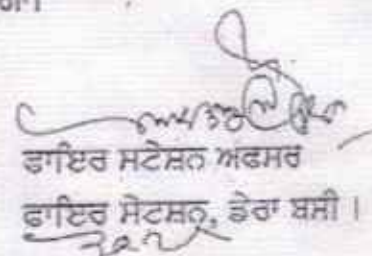 ਫਾਇਰ ਸਟੇਸ਼ਨ ਅਫਸਰ
ਫਾਇਰ ਸੇਟਸ਼ਨ, ਡੇਰਾ ਬਸੀ।